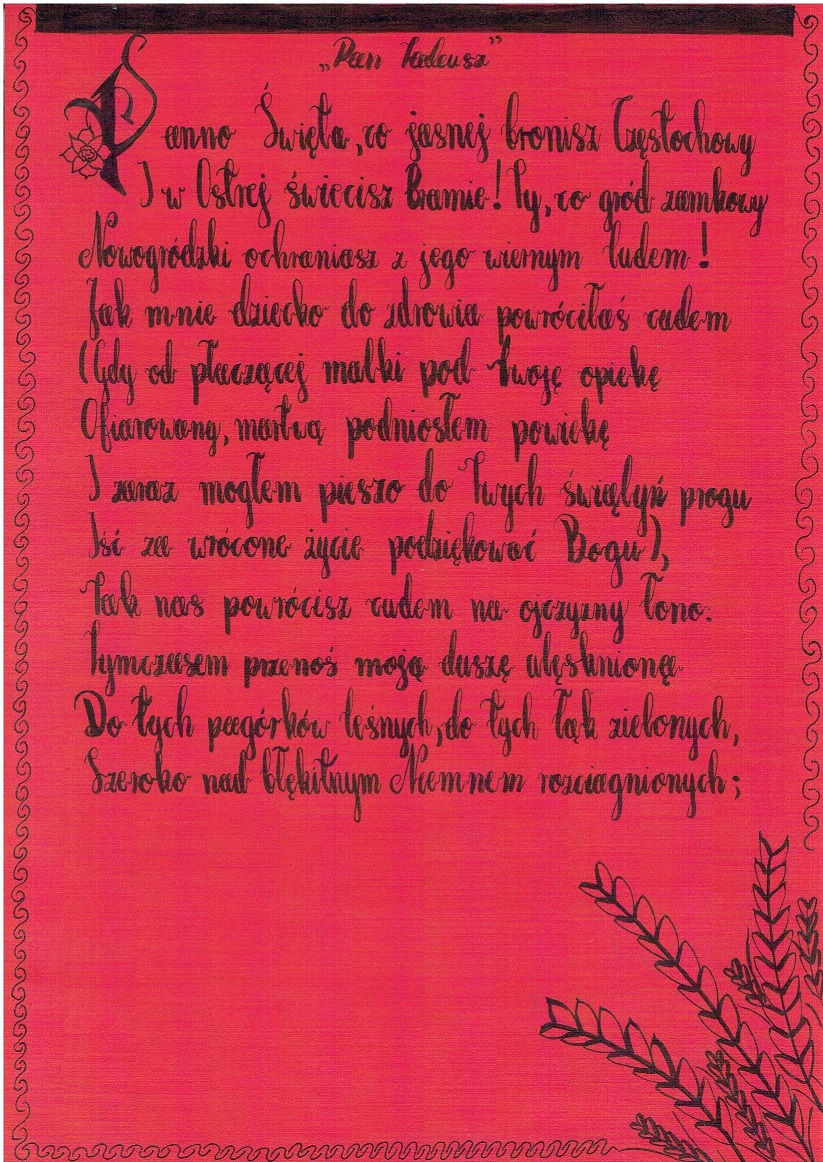 „Pan Tadeusz”
Panno Święta, co jasnej bronisz Częstochowy
I w Ostrej świecisz Bramie! Ty, co gród zamkowy
Nowogródzki ochraniasz z jego wiernym ludem!
Jak mnie dziecko do zdrowia powróciłaś cudem
(Gdy od płaczącej matki pod Twoję opiekę
Ofiarowany, martwą podniosłem powiekę
I zaraz mogłem pieszo do Twych świątyń progu
Iść za wrócone życie podziękować Bogu),
Tak nas powrócisz cudem na ojczyzny łono.
Tymczasem przenoś moją duszę utęsknioną
Do tych pagórków leśnych, do tych łąk zielonych,
Szeroko nad błękitnym Niemnem rozciągnionych;